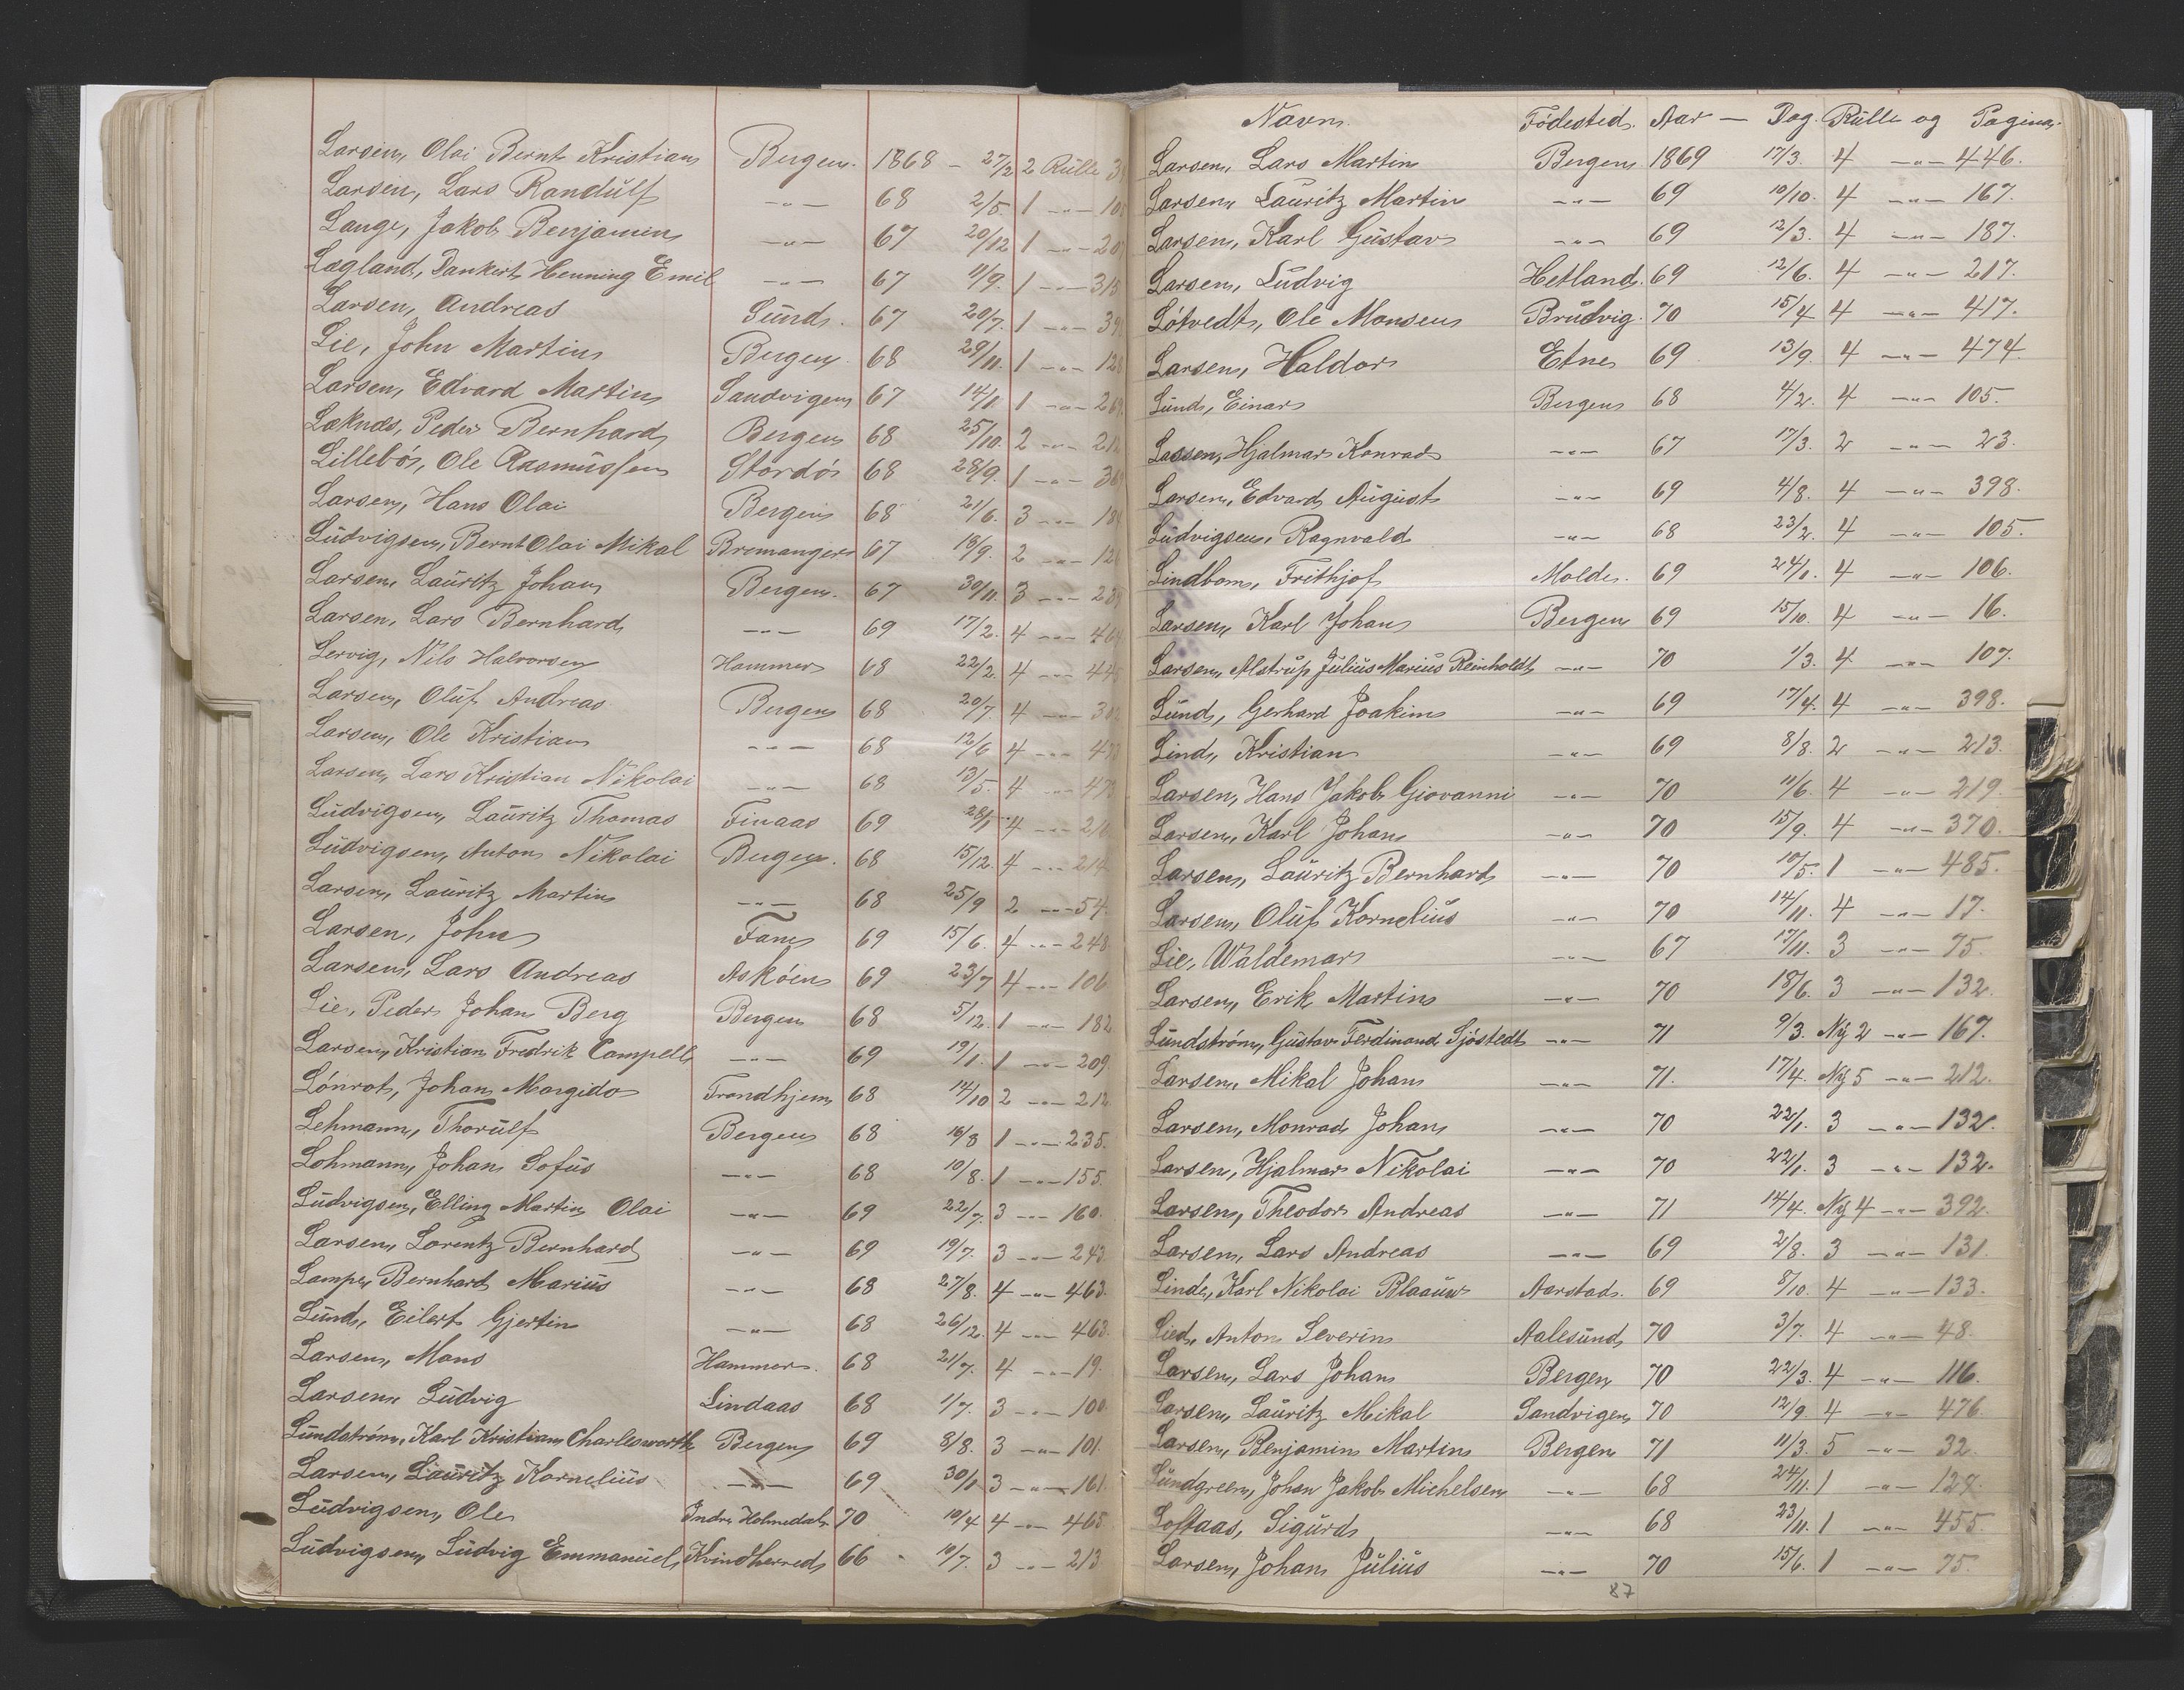 Larsen, Olai Bernt Kristian Bergen. 1868 – 27/2 2 Rulle
Larsen, Lars Randulf –"– 68 2/5. 1 –"–
Lange, Jakob Benjamin –"– 67 20/12 1 –"–
Lægland, Dankert Henning Emil –"– 67 11/9. 1 –"– 315
Larsen, Andreas Sund. 67 20/7. 1 –"–
Lie, John Martin Bergen. 68 29/11. 1 –"–
Larsen, Edvard Martin Sandvigen 67 14/1. 1 –"–
Læknæs, Peder Bernhard Bergen 68 25/10. 2 –"–
Lillebø, Ole Rasmussen Stordø 68 28/9. 1 –"–
Larsen, Hans Olai Bergen 68 21/6. 3 –"–
Ludvigsen, Bernt Olai Mikal Bremanger 67 18/9. 2 –"–
Larsen, Lauritz Johan Bergen. 67 30/11. 3 –"–
Larsen, Lars Bernhard –"– 69 17/2. 4 –"–
Lervig, Nils Halvorsen Hammer 68 22/2. 4 –"–
Larsen, Oluf Andreas Bergen 68 20/7. 4 –"–
Larsen, Ole Kristian –"– 68 12/6 4 –"–
Larsen, Lars Kristian Nikolai –"– 68 13/5. 4 –"–
Ludvigsen, Lauritz Thomas Finaas 69 28/1 4 –"–
Ludvigsen, Anton Nikolai Bergen. 68 15/12. 4 –"– 214
Larsen, Lauritz Martin –"– 68 25/9 2 –"– 54.
Larsen, John Fane 69 15/6. 4 –"– 248.
Larsen, Lars Andreas Askøen 69 23/7 4 –"– 106
Lie, Peder Johan Berg Bergen 68 5/12. 1 –"– 182
Larsen, Kristian Fredrik Campell –"– 69 19/1. 1 –"– 209.
Lönrot, Johan Margido Trondhjem 68 14/10 2 –"– 212
Lehmann, Thorulf Bergen 68 16/8 1 –"– 235.
Lohmann, Johan Sofus –"– 68 10/8. 1 –"– 155.
Ludvigsen, Elling Martin Olai –"– 69 22/7. 3 –"– 160.
Larsen, Lorentz Bernhard –"– 69 19/7. 3 –"– 243
Lampe, Bernhard Marius –"– 68 27/8. 4 –"– 463.
Lund, Eilert Gjertin –"– 68 26/12. 4 –"– 463.
Larsen, Mons Hammer. 68 21/7. 4 –"– 19.
Larsen, Ludvig Lindaas 68 1/7. 3 –"– 100.
Lundstrøm, Karl Kristian Charlesworth Bergen 69 8/8. 3 –"– 101.
Larsen, Lauritz Kornelius –"– 69 30/1 3 –"– 161.
Ludvigsen, Ole Indre Holmedal 70 10/4 4 –"– 465.
Ludvigsen, Ludvig Emmanuel Kvindherred 66 10/7. 3 –"– 213
Navn. Fødested. Aar – Dag. Rulle og Pagina.
Larsen, Lars Martin Bergen 1869 17/3. 4 –"– 446.
Larsen, Lauritz Martin –"– 69 10/10. 4 –"– 167.
Larsen, Karl Gustav –"– 69 2/3. 4 –"– 187.
Larsen, Ludvig Hetland. 69 12/6. 4 –"– 217.
Løtvedt, Ole Monsen Brudvig. 70 15/4 4 –"– 417.
Larsen, Haldor Etne 69 13/9. 4 –"– 474.
Lund, Einar Bergen 68 4/2. 4 –"– 105.
Lassen, Hjalmar Konrad –"– 67 17/3. 2 –"– 23.
Larsen, Edvard August –"– 69 4/8. 4 –"– 398.
Ludvigsen, Ragnvald –"– 68 23/2. 4 –"– 105.
Lindbom, Frithjof Molde. 69 24/1. 4 –"– 106.
Larsen, Karl Johan Bergen 69 15/10. 4 –"– 16.
Larsen, Alstrup Julius Marius Reinholdt –"– 70 1/3. 4 –"– 107.
Lund, Gerhard Joakim –"– 69 17/4. 4 –"– 398.
Lind, Kristian –"– 69 8/8. 2 –"– 213.
Larsen, Hans Jakob Giovanni –"– 70 11/6. 4 –"– 219.
Larsen, Karl Johan –"– 70 15/9. 4 –"– 370.
Larsen, Lauritz Bernhard –"– 70 10/5. 1 –"– 485.
Larsen, Oluf Kornelius –"– 70 14/11. 4 –"– 17.
Lie, Waldemar –"– 67 17/11. 3 –"– 75.
Larsen, Erik Martin –"– 70 18/6. 3 –"– 132.
Lundstrøm, Gustav Ferdinand Sjöstedt –"– 71 9/3. Ny 2 –"– 167.
Larsen, Mikal Johan –"– 71. 17/4. Ny 5 –"– 212.
Larsen, Monrad Johan –"– 70 22/1. 3 –"– 132.
Larsen, Hjalmar Nikolai –"– 70 22/1. 3 –"– 132.
Larsen, Theodor Andreas –"– 71 14/4. Ny 4 –"– 392.
Larsen, Lars Andreas –"– 69 2/8. 3 –"– 131.
Linde, Karl Nikolai Blaauw Aarstad. 69 8/10. 4 –"– 133.
Lied, Anton Severin Aalesund 70 3/7. 4 –"– 48.
Larsen, Lars Johan Bergen 70 22/3. 4 –"– 116.
Larsen, Lauritz Mikal Sandvigen 70 12/9. 4 –"– 476
Larsen, Benjamin Martin Bergen 71 11/3. 5 –"– 32.
Lundgreen, Johan Jakob Michelsen –"– 68 24/11. 1 –"– 127.
Loftaas, Sigurd –"– 68 23/11. 1 –"– 455
Larsen, Johan Julius –"– 70 15/6. 1 –"– 75.
87